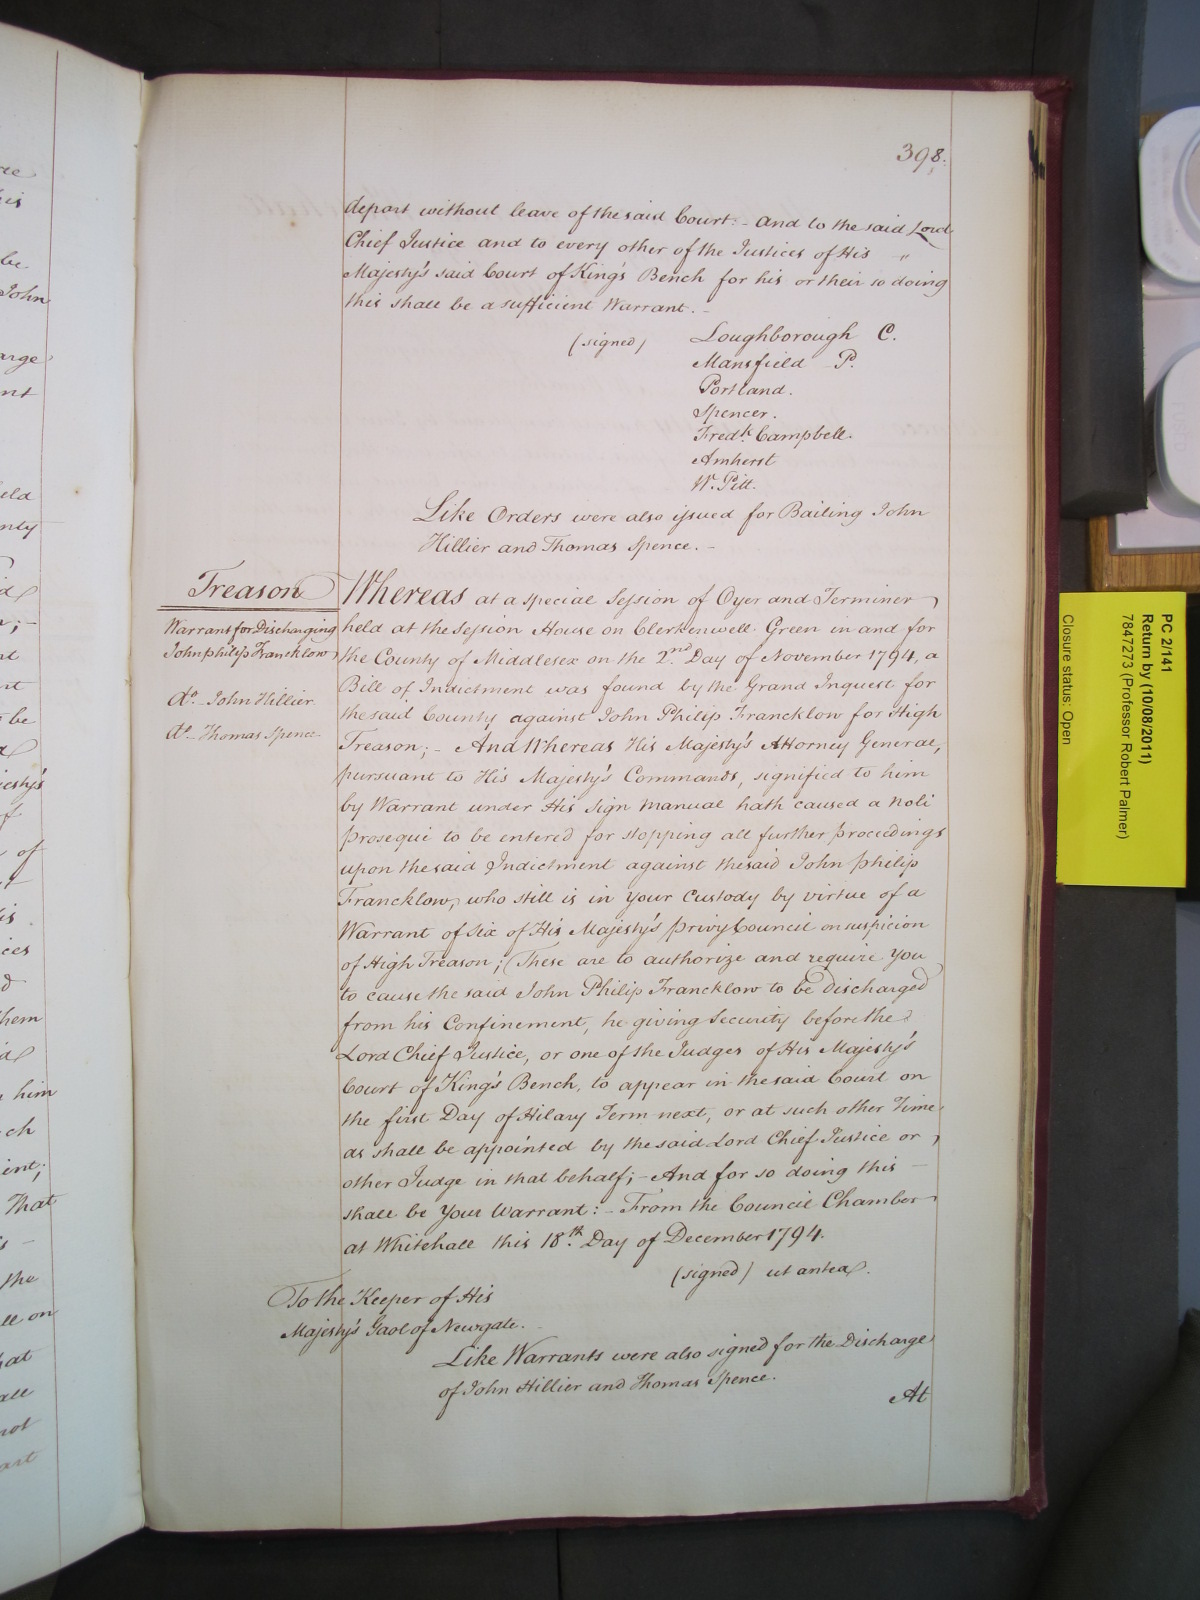 398.
depart without leave of the said Court:- And to the said Lord
Chief Justice and to every other of the Justices of His "
Majesty's said Court of King's Bench for his or their so doing
this shall be a sufficient Warrant.-
(signed) Loughborough C.
Mansfield P.
Portland.
Spencer.
Fredk. Campbell.
Amherst
W. Pitt.
Like Orders were also issued for Bailing John
Hillier and Thomas Spence.-
Treason
Warrant for Discharging
John philip Francklow
Do. John Hillier
Do. Thomas Spence
Whereas at a special Session of Oyer and Terminer
held at the Session House on Clerkenwell Green in and for
the County of Middlesex on the 2nd. Day of November 1794, a
Bill of Indictment was found by the Grand Inquest for
the said County against John Philip Francklow for High
Treason;- And Whereas His Majesty's Attorney General,
pursuant to His Majesty's Commands, signified to him
by Warrant under His Sign Manual hath caused a Noli
prosequi to be entered for stopping all further proceedings
upon the said Indictment against the said John philip
Francklow, who still is in your Custody by virtue of a
Warrant of Six of His Majesty's privy Council on suspicion
of High Treason; These are to authorize and require You
to cause the said John Philip Francklow to be discharged
from his Confinement, he giving Security before the
Lord Chief Justice, or one of the Judges of His Majesty's
Court of King's Bench, to appear in the said Court on
the first Day of Hilary Term next, or at such other Time
as shall be appointed by the said Lord Chief Justice or
other Judge in that behalf;- And for so doing this -
shall be Your Warrant:- From the Council Chamber
at Whitehall this 18th. Day of December 1794.
(signed) ut antea.
To the Keeper of His
Majesty's Gaol of Newgate.
Like Warrants were also signed for the Discharge
of John Hillier and Thomas Spence.
At
his
be
John
arge
nt
eld
nty
be
esty's
of
of
his
ices
hem
him
ch
ent;
That
the
ll on
hat
all
not
PC 2/141
Return by (10/08/2011)
7847273 (Professor Robert Palmer)
Closure status: Open